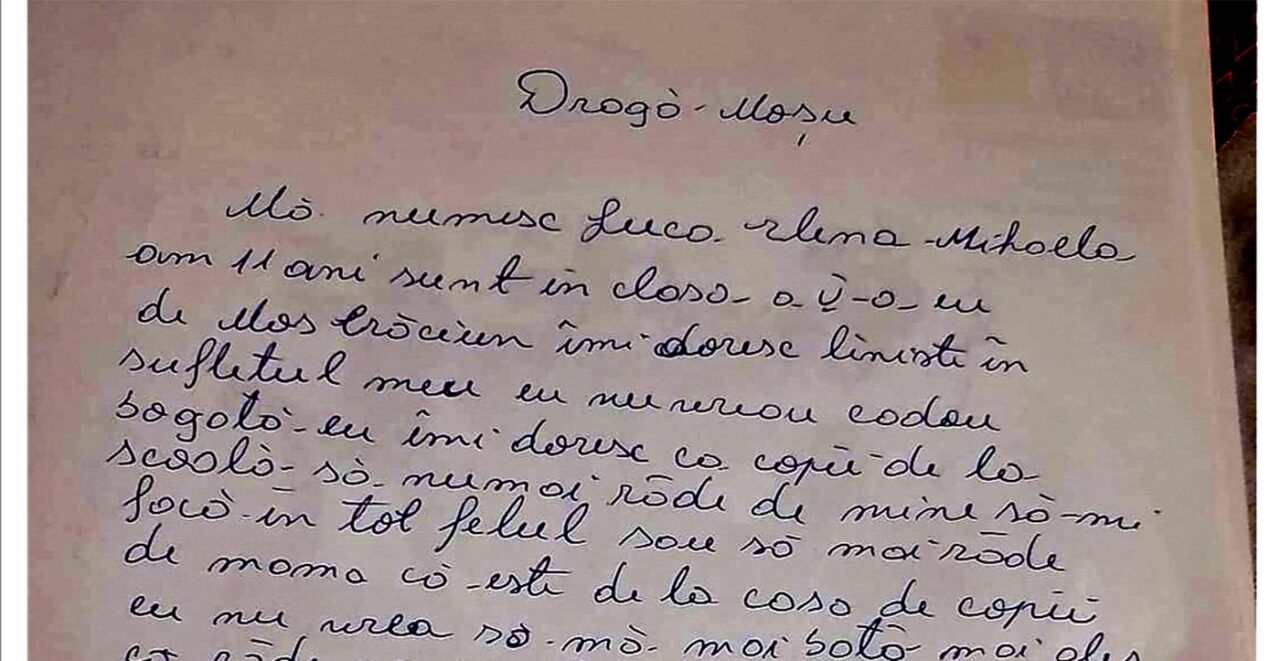 Dragă Moșu
Mă numesc Luca Elena Mihaela
am 11 ani sunt în clasa a V-a eu
de Mos Crăciun îmi doresc liniste în
sufletul meu eu nu vreau cadou
bogată eu îmi doresc ca copii de la
scoală să numai râde de mine să-mi
facă în tot felul sau să mai râde
de mama că este de la casa de copii
eu nu vrea să mă mai bată mai ales